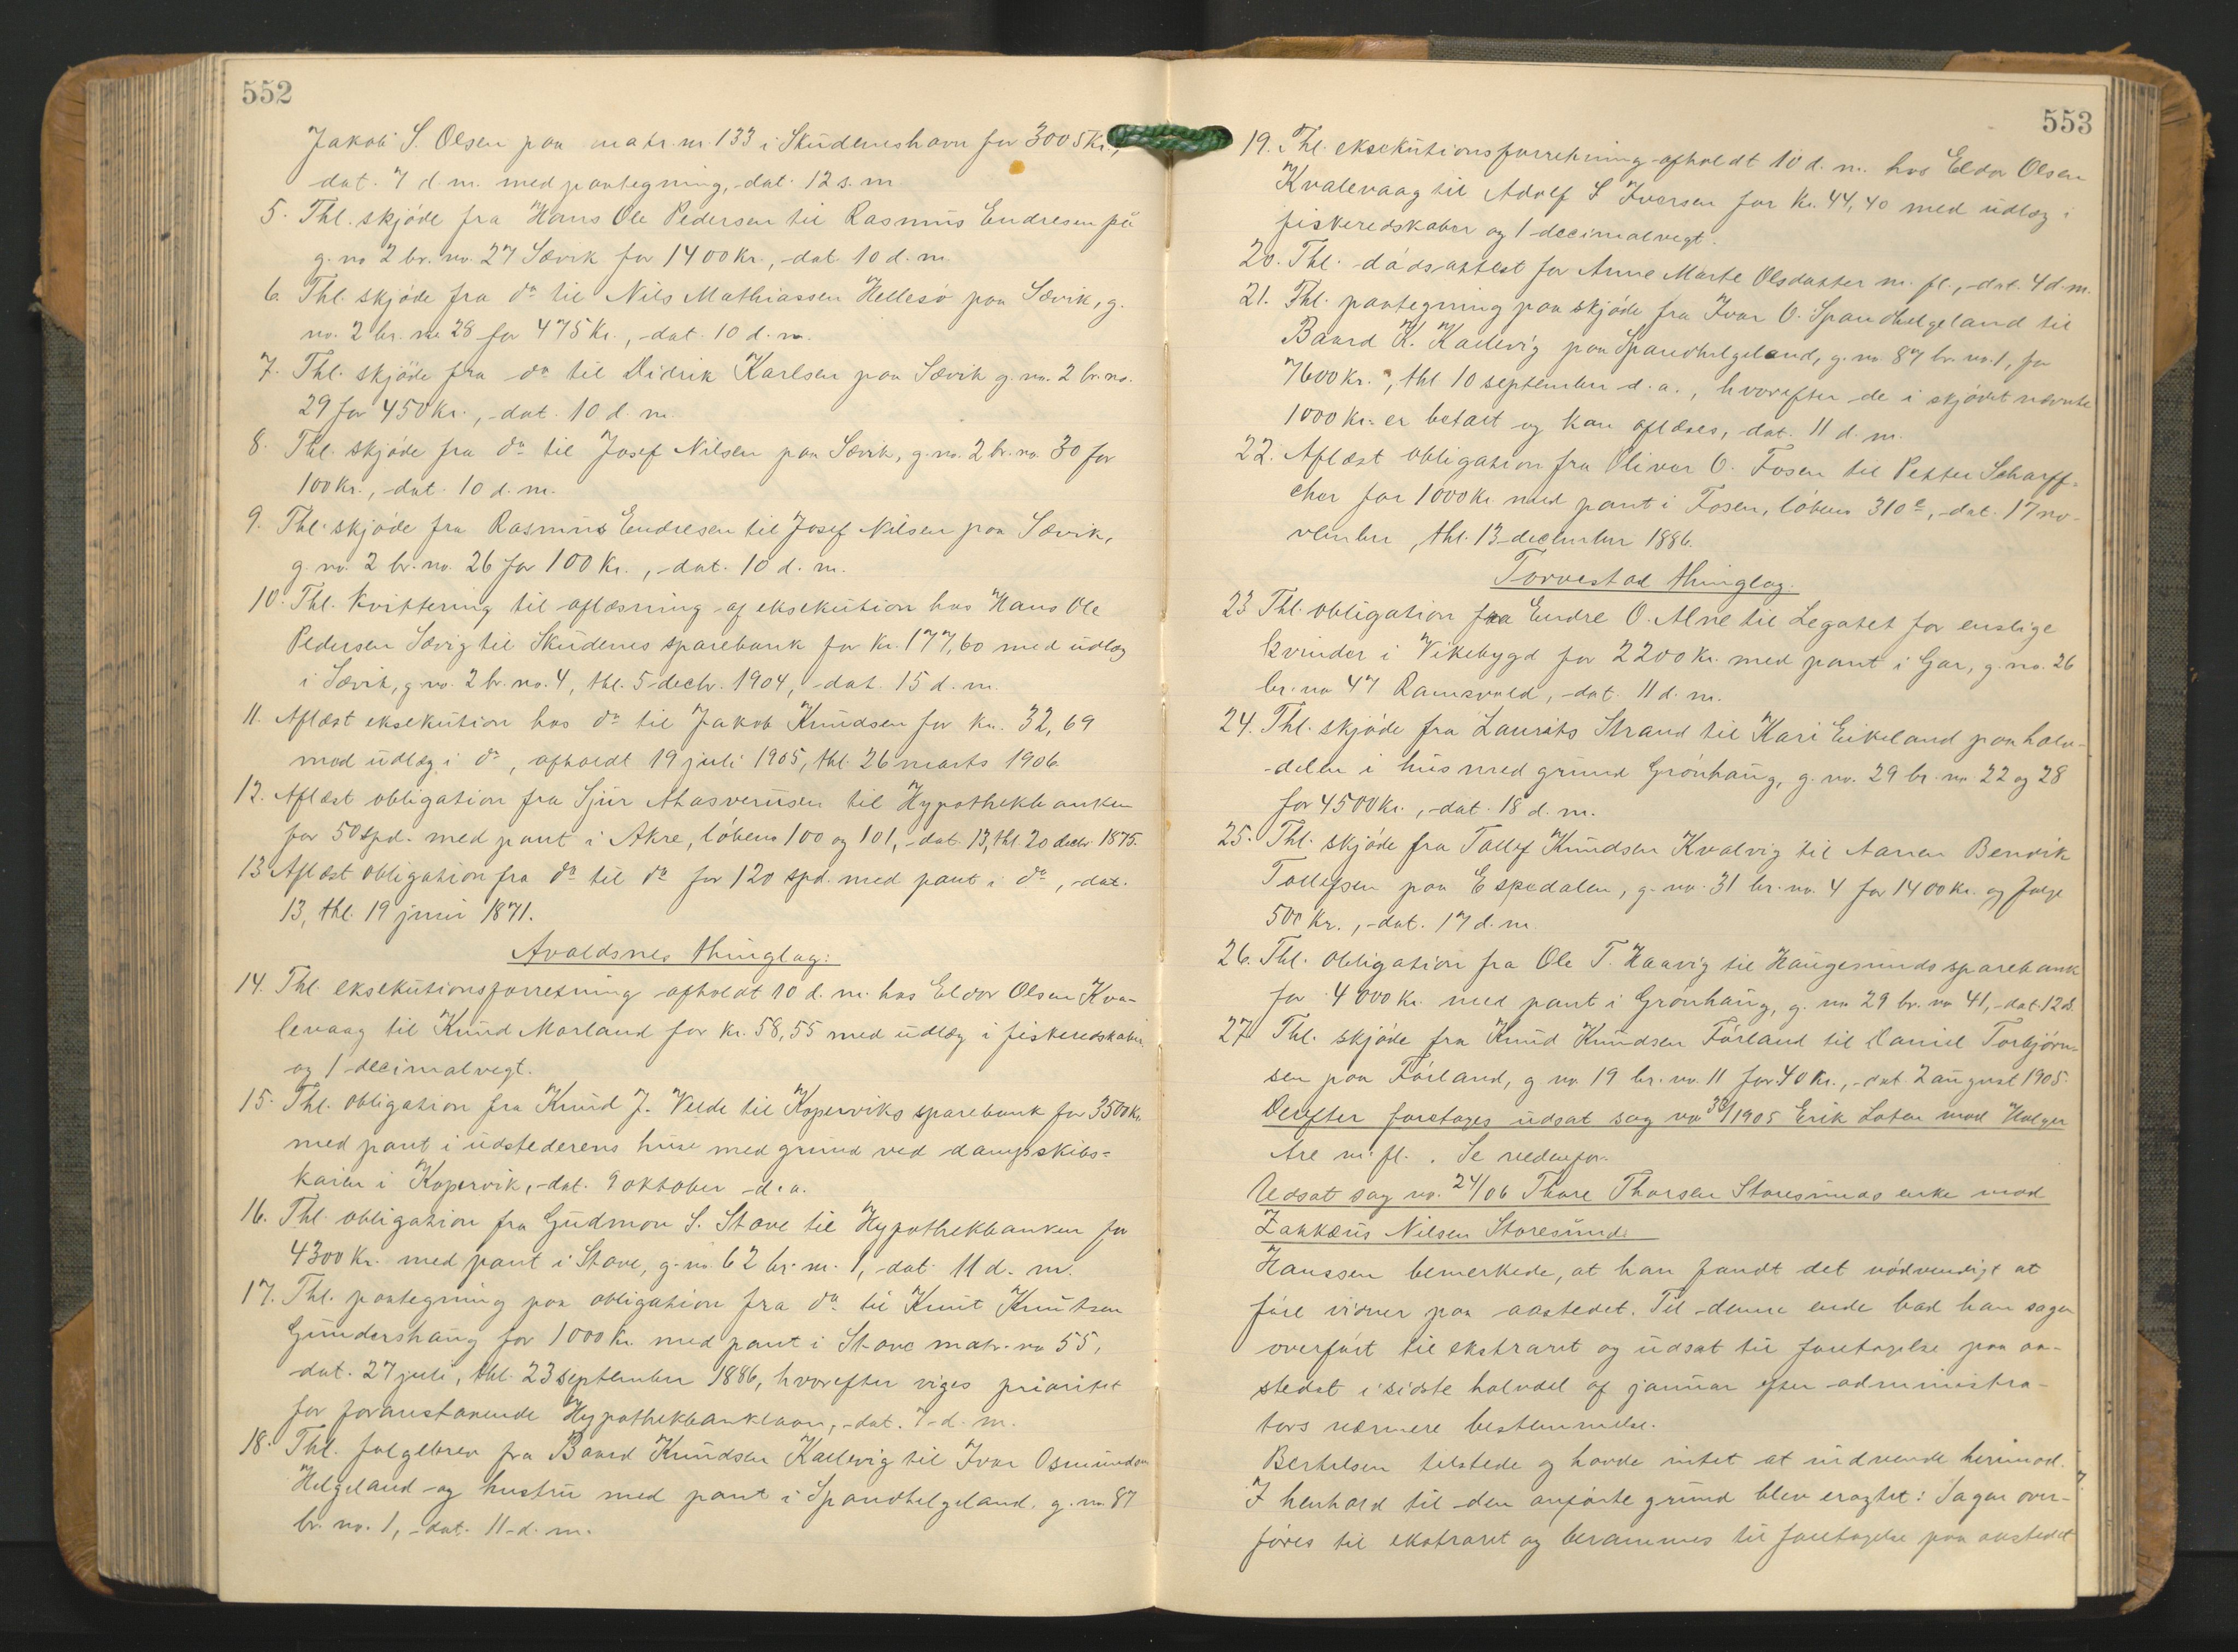 552
Jakob S. Olsen paa matr. nr. 133 i Skudeneshavn for 3005 Kr.,
dat. 7 d. m. med paategning, dat. 12 s. m.
5. Thl. skjøde fra Hans Ole Pedersen til Rasmus Endresen på
g. no 2 br. no. 27 Sævik for 1400 Kr., dat. 10 d. m.
6. Thl. skjøde fra do til Nils Mathiassen Hellesø paa Sævik, g.
no. 2 br. no 28 for 475 Kr., dat. 10 d. m.
7. Thl. skjøde fra do til Didrik Karlsen paa Sævik g. no. 2 br. no.
29 for 450 Kr., dat. 10 d. m.
8. Thl. skjøde fra do til Josef Nilsen paa Sævik, g. no. 2 br. no. 30 for
100 Kr., dat. 10 d. m.
9. Thl. skjøde fra Rasmus Endresen til Josef Nilsen paa Sævik,
g. no. 2 br. no. 26 for 100 Kr., dat. 10 d. m.
10. Thl. kvittering til aflæsning af eksekution hos Hans Ole
Pedersen Sævig til Skudenes sparebank for Kr. 177,60 med udlæg
i Sævik, g. no. 2 br. no. 4, thl. 5 decbr. 1904, dat. 15 d. m.
11. Aflæst eksekution hos do til Jakob Knudsen for Kr. 32,69
med udlæg i do, afholdt 19 juli 1905, thl. 26 marts 1906
12. Aflæst obligation fra Sjur Ahasverusen til Hypothekbanken
for 50 spd. med pant i Akre, løbeno 100 og 101, dat. 13, thl. 20 decbr. 1875.
13. Aflæst obligation fra do til do for 120 spd. med pant i do, dat.
13, thl. 19 juni 1871.
Avaldsnes thinglag:
14. Thl. eksekutionsforretning afholdt 10 d. m. hos Eldor Olsen Kva-
levaag til Knud Morland for Kr. 58,55 med udlæg i fiskeredskaber
og 1 decimalvegt.
15. Thl. obligation fra Knud J. Velde til Koperviks sparebank for 3500 Kr.
med pant i udstederens huse med grund ved dampskibs-
kaien i Kopervik, dat. 9 oktober d. a.
16. Thl. obligation fra Gudmon S. Stave til Hypothekbanken for
4300 Kr. med pant i Stave, g. no. 62 br. nr. 1, dat. 11 d. m.
17. Thl. paategning paa obligation fra do til Knut Knutsen
Gundershaug for 1000 Kr. med pant i Stave matr. no 55,
dat. 27 juli, thl. 23 september 1886, hvorefter viges prioritet
for foranstaaende Hypothekbanklaan, dat. 7 d. m.
18. Thl. følgebrev fra Baard Knudsen Kallevig til Ivar Osmundsen
Helgeland og hustru med pant i Spandhelgeland, g. no 87
br. no. 1, dat. 11 d. m.
553
19. Thl. eksekutionsforretning afholdt 10 d. m. hos Eldor Olsen
Kvalevaag til Adolf S Ivarsen for Kr. 44,40 med udlæg i
fiskeredskaber og 1 decimalvegt.
20. Thl. dødsattest for Anne Marte Olsdatter m. fl., dat. 4 d. m.
21. Thl. paategning paa skjøde fra Ivar O. Spandhelgeland til
Baard K. Kallevig paa Spandhelgeland, g. no. 87 br. no. 1, for
7600 Kr., thl 10 september d. a., hvorefter de i skjødet nævnte
1000 Kr. er betalt og kan aflæses, dat. 11 d. m.
22. Aflæst obligation fra Oliver O. Fosen til Petter Scharff-
cher for 1000 Kr. med pant i Fosen, løbeno 310 c, dat. 17 no-
vember, thl. 13 december 1886.
Torvestad thinglag.
23. Thl. obligation fra Endre O. Alne til Legatet for enslige
kvinder i Vikebygd for 2200 Kr. med pant i Gar, g. no. 26
br. no 47 Ramsvold, dat. 11 d. m.
24. Thl. skjøde fra Laurits Strand til Kari Eikeland paa halv-
delen i hus med grund Grønhaug, g. no. 29 br. no 22 og 28
for 4500 Kr., dat. 18 d. m.
25. Thl. skjøde fra Tollef Knudsen Kvalvig til Aanen Bendik
Tollefsen paa Espedalen, g. no. 31 br. no. 4 for 1400 Kr. og følge
500 Kr., dat. 17 d. m.
26. Thl. obligation fra Ole T. Haavig til Haugesunds sparebank
for 4000 Kr. med pant i Grønhaug, g. no 29 br. no 41, dat. 12 ds.
27. Thl. skjøde fra Knud Knudsen Førland til Daniel Torbjørn-
sen paa Førland, g no. 19 br. no. 11 for 40 Kr., dat. 2 august 1905.
Derefter foretages udsat sag no 38/1905 Erik Loten mod Holger
Are m. fl. . Se nedenfor.
Udsat sag no. 24/06 Thore Thorsen Storesunds enke mod
Zakkæus Nilsen Storesund.
Hanssen bemerkede, at han fandt det nødvendigt at
føre vidner paa aastedet. Til denne ende bad han sagen
overført til ekstraret og udsat til foretagelse paa aa-
stedet i sidste halvdel af januar efter administra-
tors nærmere bestemmelse.
Bertelsen tilstede og havde intet at indvende herimod.
I henhold til den anførte grund blev eragtet: Sagen over-
føres til ekstraret og berammes til foretagelse paa aastedet